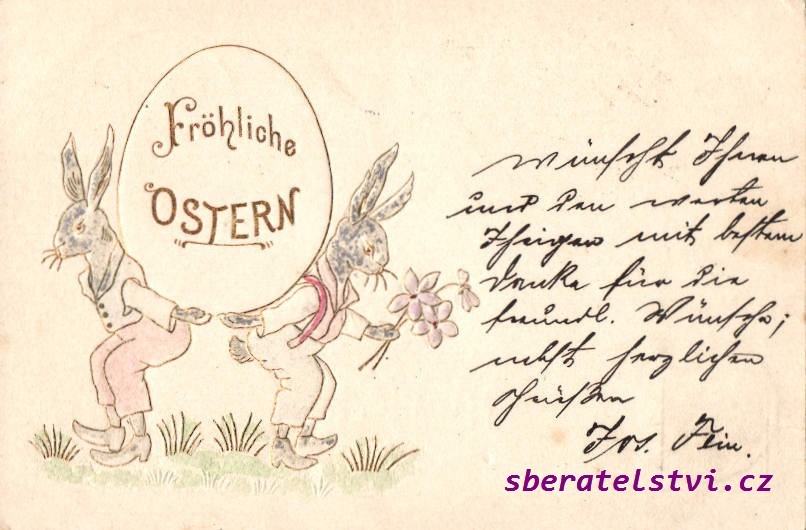 Fröhliche
OSTERN
wünscht Ihnen
und den werten
Ihrigen mit bestem
Danke für die
freundl. Wünsche;
nebst herzlichen
Grüßen
Jos.
sberatelstvi.cz